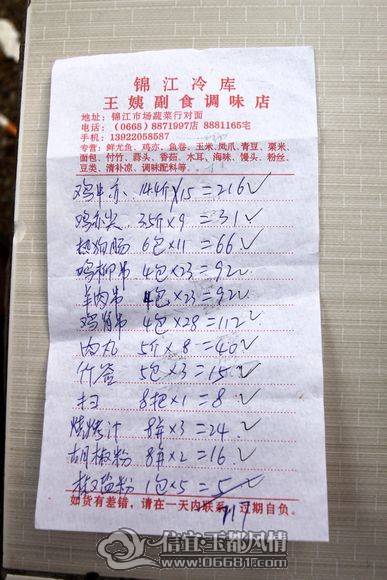 锦江冷库
王姨副食调味店
地址：锦江市场蔬菜行对面
电话：（0668）8871997店 8881165宅
手机：13922058587
专营：鲜尤鱼、鸡亦、鱼卷、玉米、凤爪、青豆、粟米、
面包、付竹、蒜头、香菇、木耳、海味、馒头、粉丝、
豆类、清补凉、调味配料等。
鸡中亦 14.4斤×15=216✓
鸡亦尖 3.5斤×9=31✓
热狗肠 6包×11=66✓
鸡柳串 4包×23=92✓
羊肉串 4包×23=92✓
鸡肾串 4包×28=112✓
肉丸 5斤×8=40✓
竹签 5包×3=15✓
扫 8把×1=8✓
烧烤汁 8并×3=24✓
胡椒粉 8并×2=16✓
椒盐粉 1包×5=5✓
如货有差错，请在一天内联系，过期自负。
717
信宜玉都风情
www.06681.com